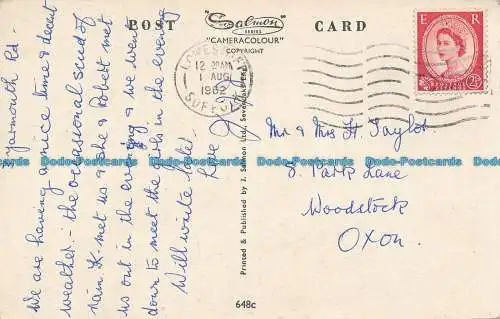 POST
Salmon
SERIES
"CAMERACOLOUR"
COPYRIGHT
CARD
E R
2½D
LOWESTOFT
12 30AM
1 AUG
1962
SUFFOLK
Yarmouth Rd.
We are having a nice time & decent
weather - the occasional spud of
rain. K - met us & she & Robert met
us out in the evening & we went
down to meet the girls in the evening
Will write later.
Love
Printed & Published by J. Salmon Ltd., Sevenoaks, Eng.
Mr & Mrs H. Taylor
8. Park Lane
Woodstock
Oxon.
648c
Dodo-Postcards Dodo-Postcards Dodo-Postcards Dodo-Postcards Dodo-Postcards